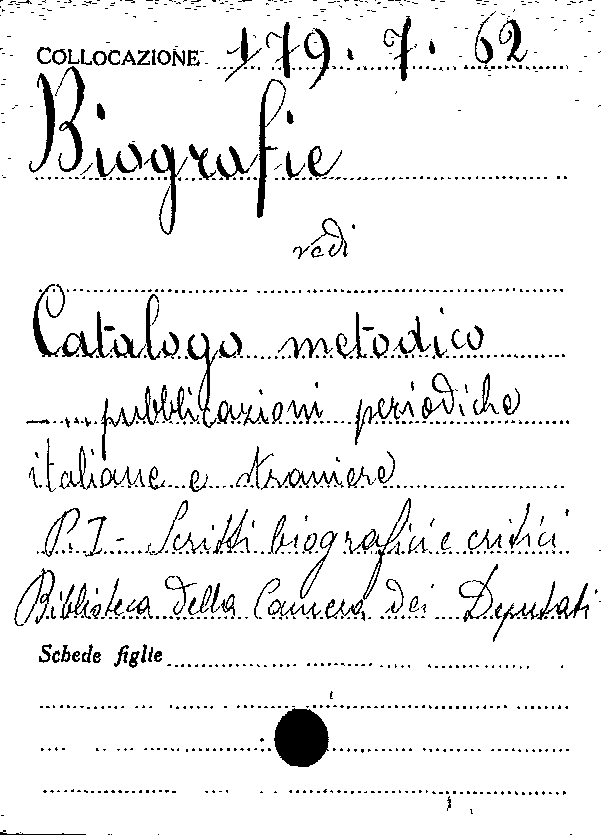 COLLOCAZIONE 179.7.62
Biografie
vedi
Catalogo metodico
— ... pubblicazioni periodiche
italiane e straniere
P.I - Scritti biografici e critici
Biblioteca della Camera dei Deputati
Schede figlie